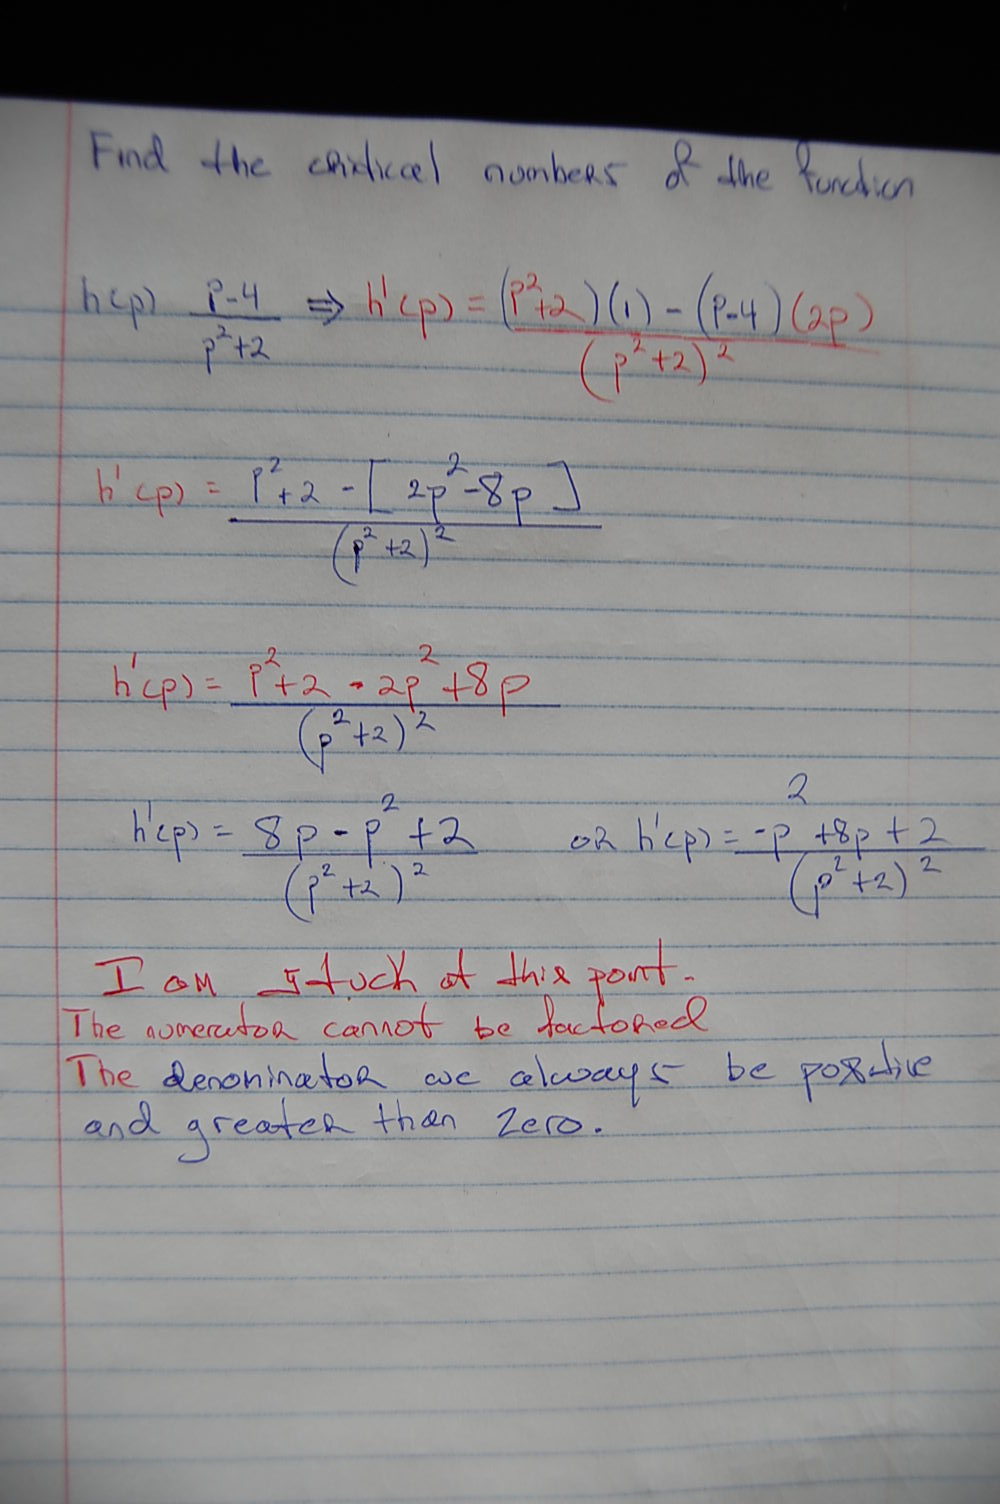 Find the critical numbers of the function
h(p) p-4/p²+2 ⇒ h'(p) = (p²+2)(1) - (p-4)(2p)/(p²+2)²
h'(p) = p²+2 - [2p²-8p]/(p²+2)²
h'(p) = p²+2 - 2p²+8p/(p²+2)²
h'(p) = 8p - p² + 2/(p²+2)² or h'(p) = -p²+8p+2/(p²+2)²
I am stuck at this point.
The numerator cannot be factored
The denominator we always be positive
and greater than zero.